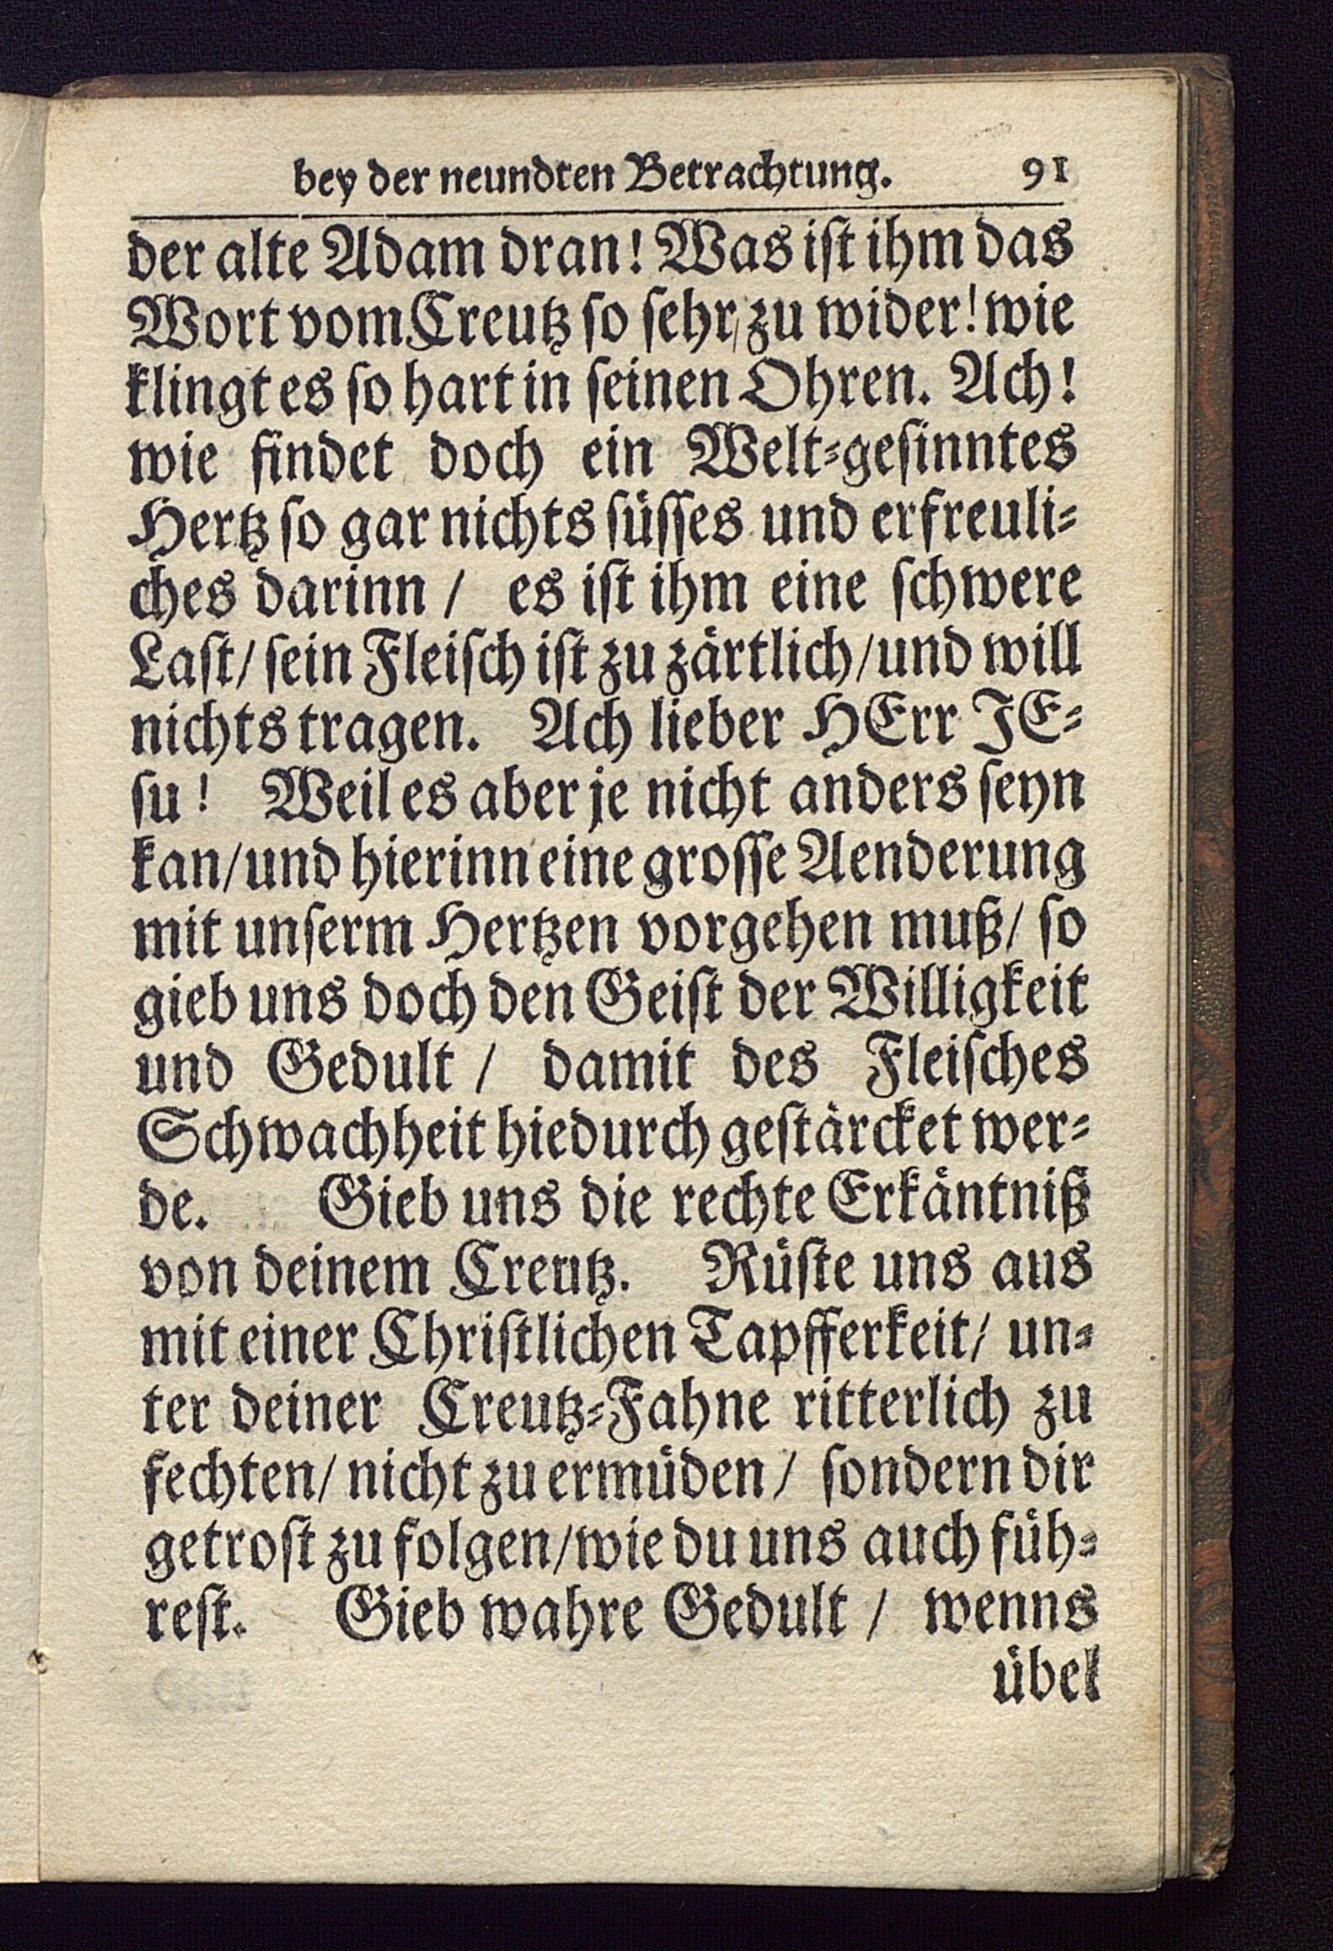 bey der neundten Betrachtung. 91
der alte Adam dran! Was iſt ihm das
Wort vom Creutz ſo ſehr zu wider! wie
klingt es ſo hart in ſeinen Ohren. Ach!
wie findet doch ein Welt-geſinntes
Hertz ſo gar nichts ſüſſes und erfreuli-
ches darinn / es iſt ihm eine ſchwere
Laſt / ſein Fleiſch iſt zu zärtlich / und will
nichts tragen. Ach lieber HErr JE-
ſu! Weil es aber je nicht anders ſeyn
kan / und hierinn eine groſſe Aenderung
mit unſerm Hertzen vorgehen muß / ſo
gieb uns doch den Geiſt der Willigkeit
und Gedult / damit des Fleiſches
Schwachheit hiedurch geſtärcket wer-
de. Gieb uns die rechte Erkäntniß
von deinem Creutz. Rüſte uns aus
mit einer Chriſtlichen Tapfferkeit / un-
ter deiner Creutz-Fahne ritterlich zu
fechten / nicht zu ermüden / ſondern dir
getroſt zu folgen / wie du uns auch füh-
reſt. Gieb wahre Gedult / wenns
übel